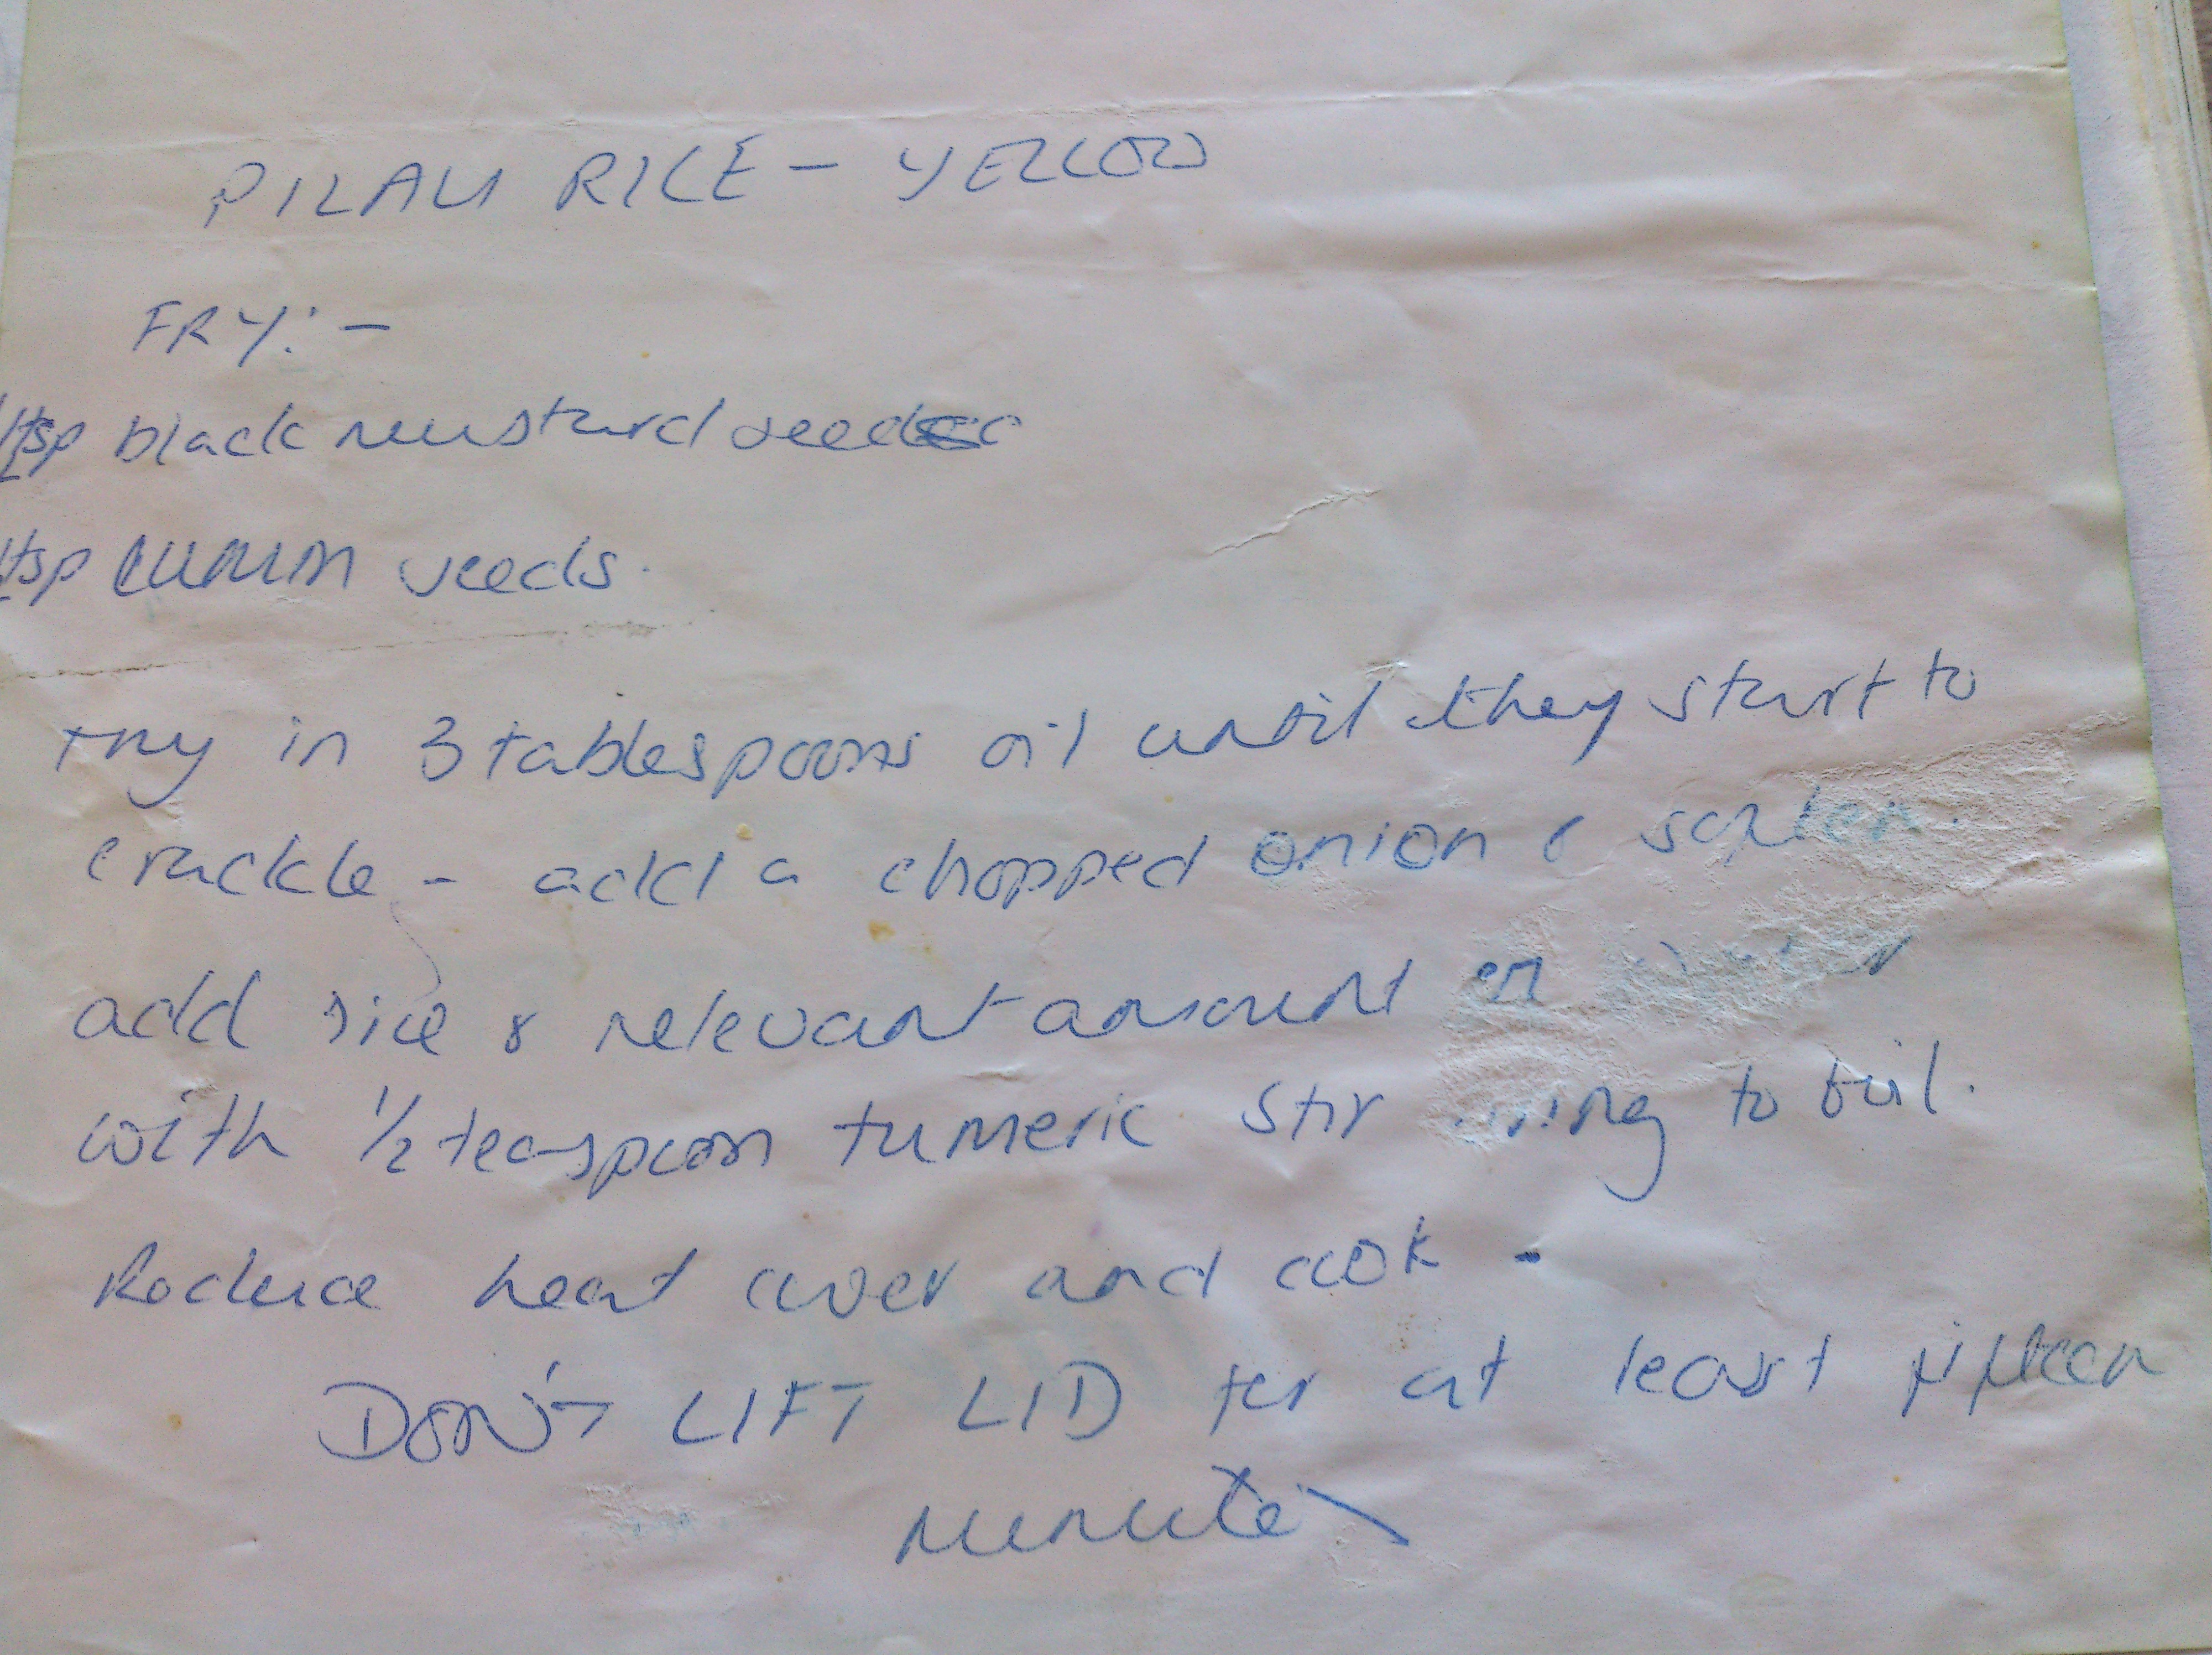 PILAU RICE - YELLOW
FRY:-
1tsp black mustard seeds
1tsp cumin seeds.
Fry in 3 tablespoons oil until they start to
crackle - add a chopped onion & soften.
add rice & relevant amount of
with 1/2 teaspoon tumeric stir bring to boil.
Reduce heat cover and cook -
DON'T LIFT LID for at least fifteen
minutes